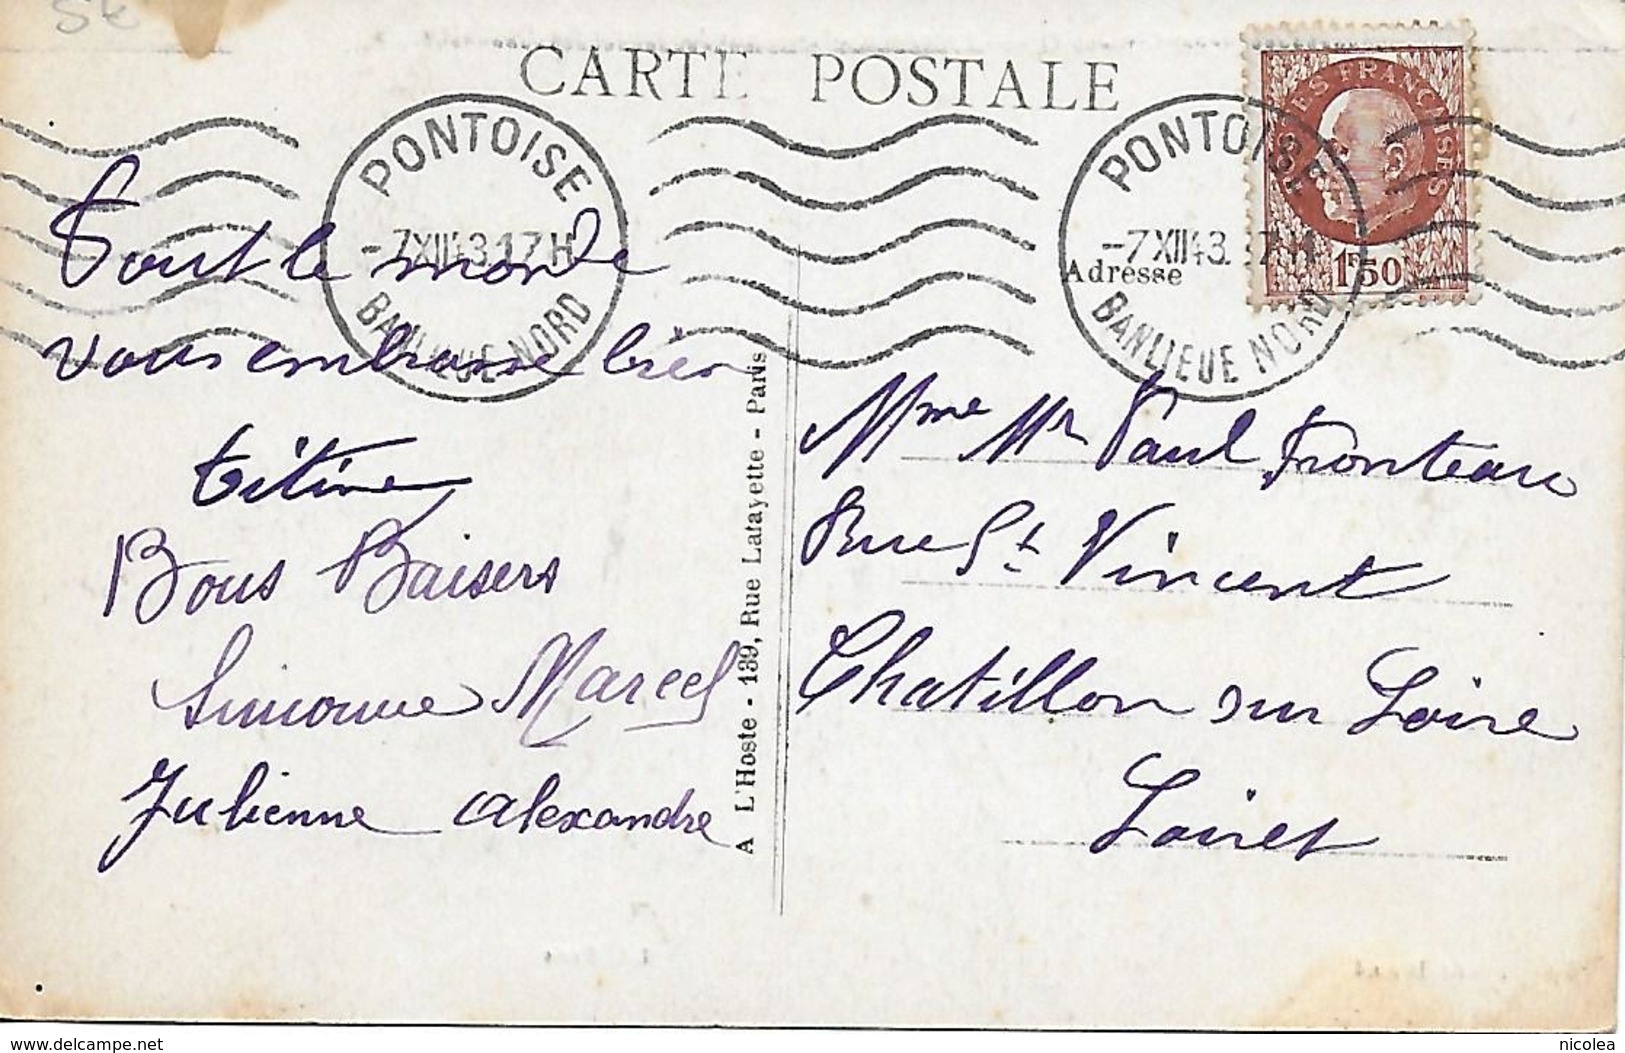 5€
CARTE POSTALE
PONTOISE
-7XII43.17H
BANLIEUE NORD
PONTOISE
-7XII43. 17H
BANLIEUE NORD
POSTES FRANÇAISES
1F50
Adresse
Tout le monde
vous embrasse bien
titine
Bons Baisers
Simonne Marcel
Julienne alexandre
A L'Hoste - 139, Rue Lafayette - Paris
Mme Mr Paul Fronteau
Rue St Vincent
Chatillon sur Loire
Loiret
www.delcampe.net
nicolea